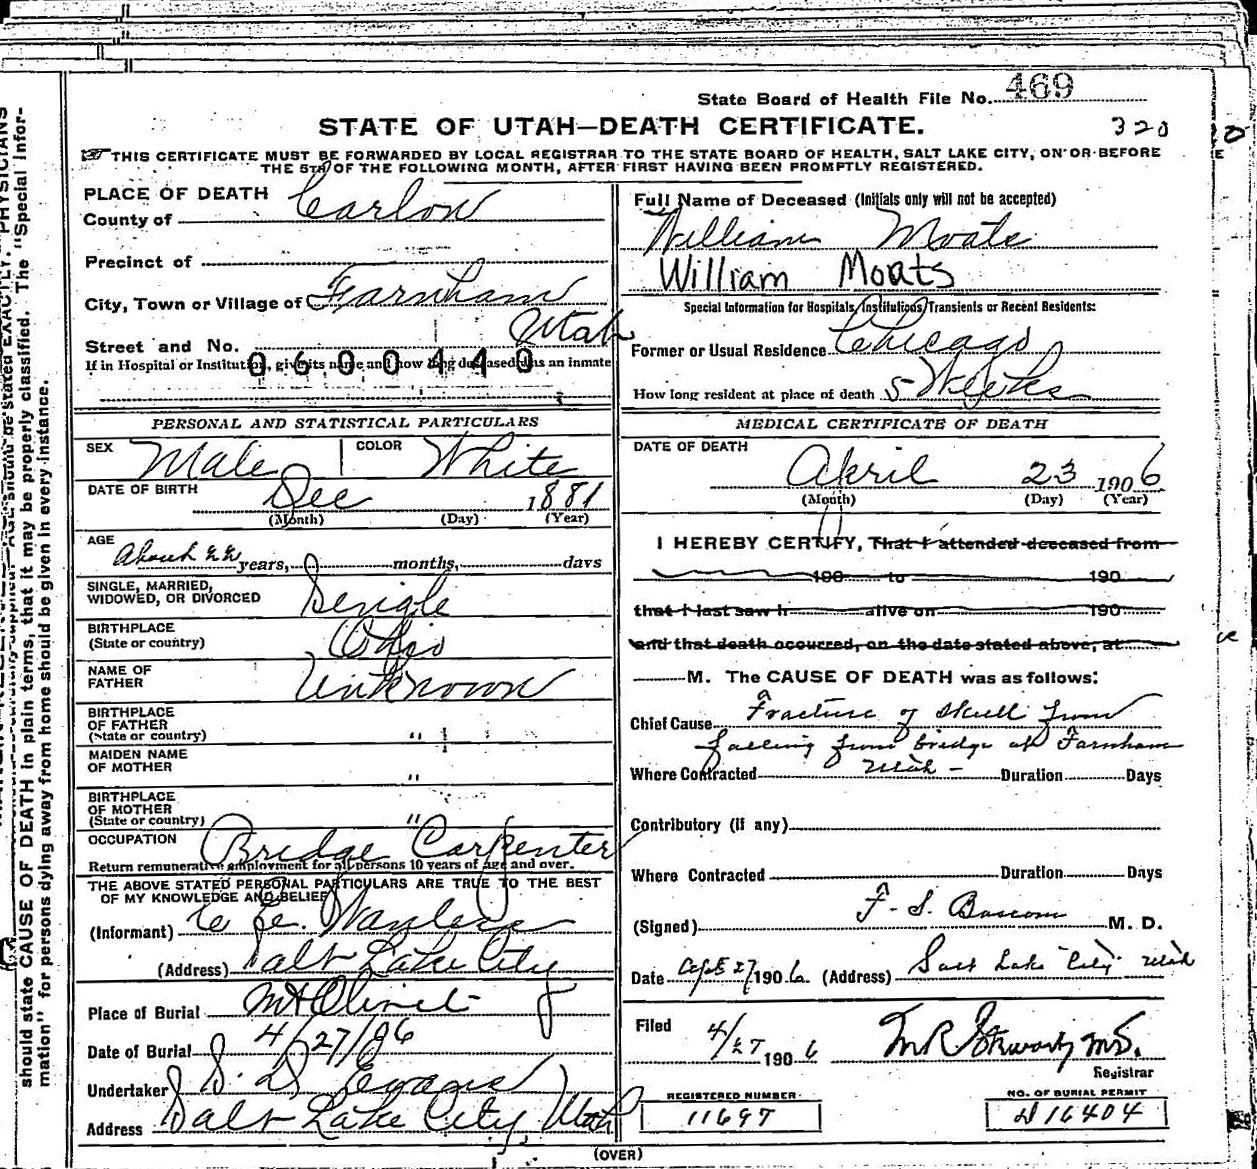 State Board of Health File No. 469
STATE OF UTAH—DEATH CERTIFICATE.
320
THIS CERTIFICATE MUST BE FORWARDED BY LOCAL REGISTRAR TO THE STATE BOARD OF HEALTH, SALT LAKE CITY, ON OR BEFORE
THE 5TH OF THE FOLLOWING MONTH, AFTER FIRST HAVING BEEN PROMPTLY REGISTERED.
PLACE OF DEATH
County of Carbon
Precinct of
City, Town or Village of Farnham
Utah
Street and No.
0600440
If in Hospital or Institution, give its name and how long deceased was an inmate
Full Name of Deceased (Initials only will not be accepted)
William Moats
William Moats
Special Information for Hospitals, Institutions, Transients or Recent Residents:
Former or Usual Residence Chicago
How long resident at place of death 5 Weeks
PERSONAL AND STATISTICAL PARTICULARS
SEX Male COLOR White
DATE OF BIRTH Dec 1881
(Month) (Day) (Year)
AGE About 22 years, months, days
SINGLE, MARRIED,
WIDOWED, OR DIVORCED Single
BIRTHPLACE
(State or country) Ohio
NAME OF
FATHER Unknown
BIRTHPLACE
OF FATHER
(State or country) "
MAIDEN NAME
OF MOTHER "
BIRTHPLACE
OF MOTHER
(State or country) "
OCCUPATION Bridge Carpenter
Return remunerative employment for all persons 10 years of age and over.
THE ABOVE STATED PERSONAL PARTICULARS ARE TRUE TO THE BEST
OF MY KNOWLEDGE AND BELIEF
(Informant)
(Address) Salt Lake City
Place of Burial Mt Olivet
Date of Burial 4/27/06
Undertaker S. D. Evans
Address Salt Lake City, Utah
MEDICAL CERTIFICATE OF DEATH
DATE OF DEATH
April 23 1906
(Month) (Day) (Year)
I HEREBY CERTIFY, That I attended deceased from
190 to 190
that I last saw h alive on 190
and that death occurred, on the date stated above, at
M. The CAUSE OF DEATH was as follows:
Chief Cause Fracture of Skull from
falling from bridge at Farnham
Where Contracted Utah - Duration Days
Contributory (if any)
Where Contracted Duration Days
(Signed) F. S. Bascom M. D.
Date 27 1906 (Address) Salt Lake City Utah
Filed 4/27 1906
Registrar
REGISTERED NUMBER
11697
NO. OF BURIAL PERMIT
16404
(OVER)
should state CAUSE OF DEATH in plain terms, that it may be properly classified. The "Special Infor-
mation" for persons dying away from home should be given in every instance.